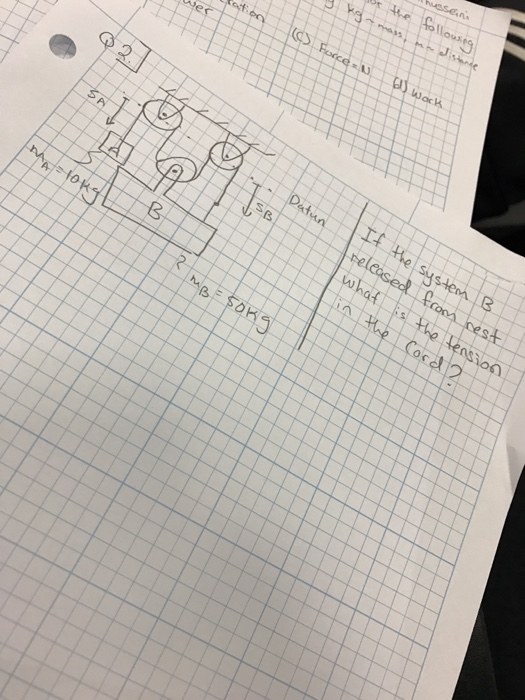 mussein.
wer
ration
for the following
g kg = mass, m = distance
(c) Force = N
(d) Work
Q2.
SA
A
mA = 10kg
B
SB
Datum
2
mB = 50kg
If the system B
released from rest
what is the tension
in the Cord?